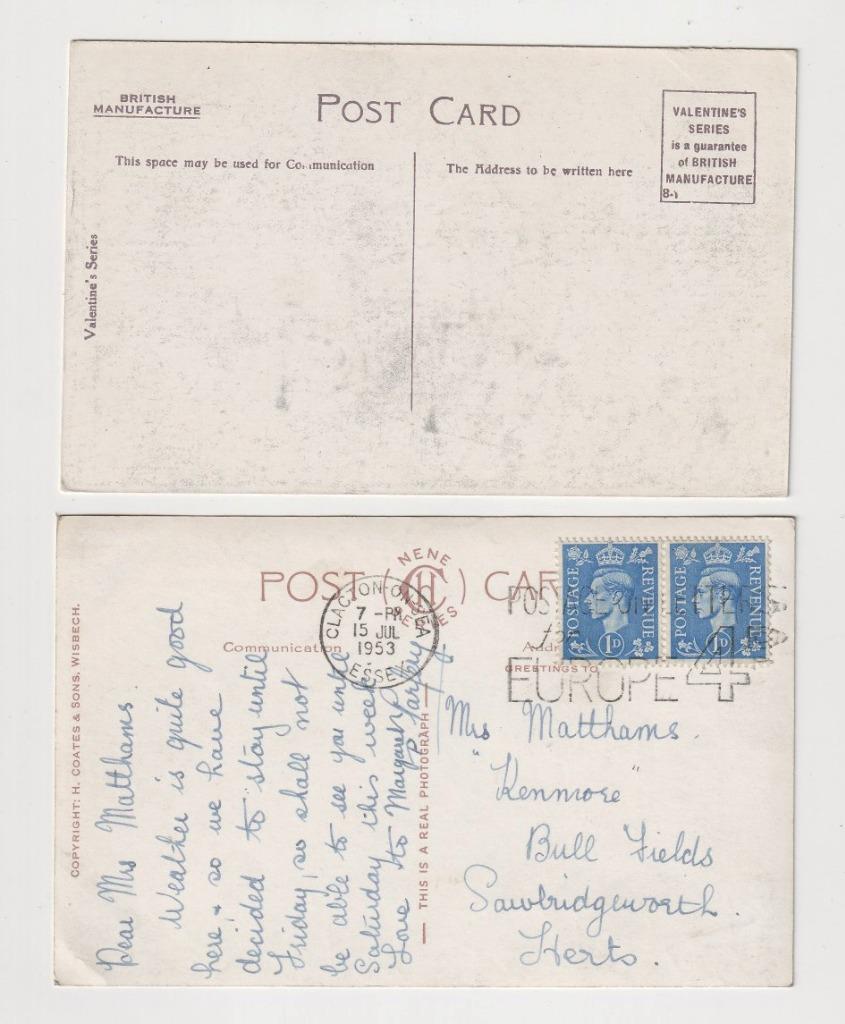 BRITISH
MANUFACTURE
POST CARD
VALENTINE'S
SERIES
is a guarantee
of BRITISH
MANUFACTURE
This space may be used for Communication
The Address to be written here
Valentine's Series
POST CARD
NENE
SERIES
CLACTON-ON-SEA
7 - PM
15 JUL
1953
ESSEX
POSTAGE REVENUE
1D
POSTAGE REVENUE
1D
POSTAGE ON LETTERS
EUROPE 4
Communication
GREETINGS TO
COPYRIGHT: H. COATES & SONS, WISBECH.
THIS IS A REAL PHOTOGRAPH
Dear Mrs Matthams
Weather is quite good
here, so we have
decided to stay until
Friday, so shall not
be able to see you until
Saturday this week
Love to Margaret
Mrs Matthams.
"Kenmore"
Bull Fields
Sawbridgeworth.
Herts.